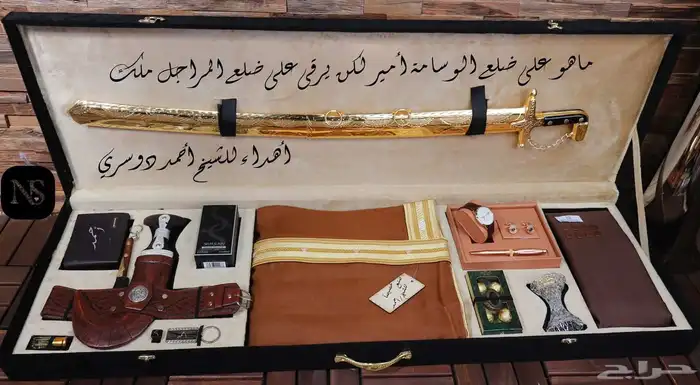 ماهو على ضلع الوسامة أمير لكن يرقى على ضلع المراجل ملك
أهداء للشيخ أحمد دوسري
NS
حراج